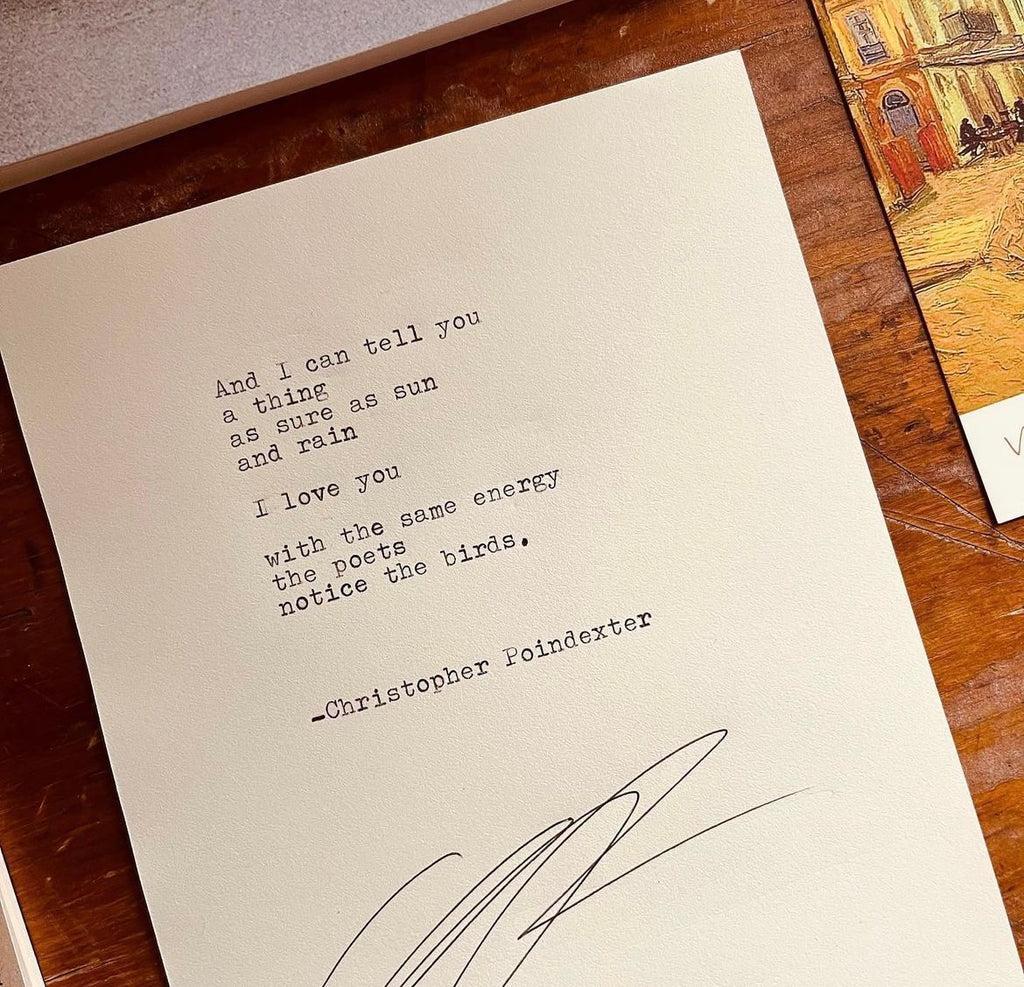 And I can tell you
a thing
as sure as sun
and rain
I love you
with the same energy
the poets
notice the birds.
-Christopher Poindexter